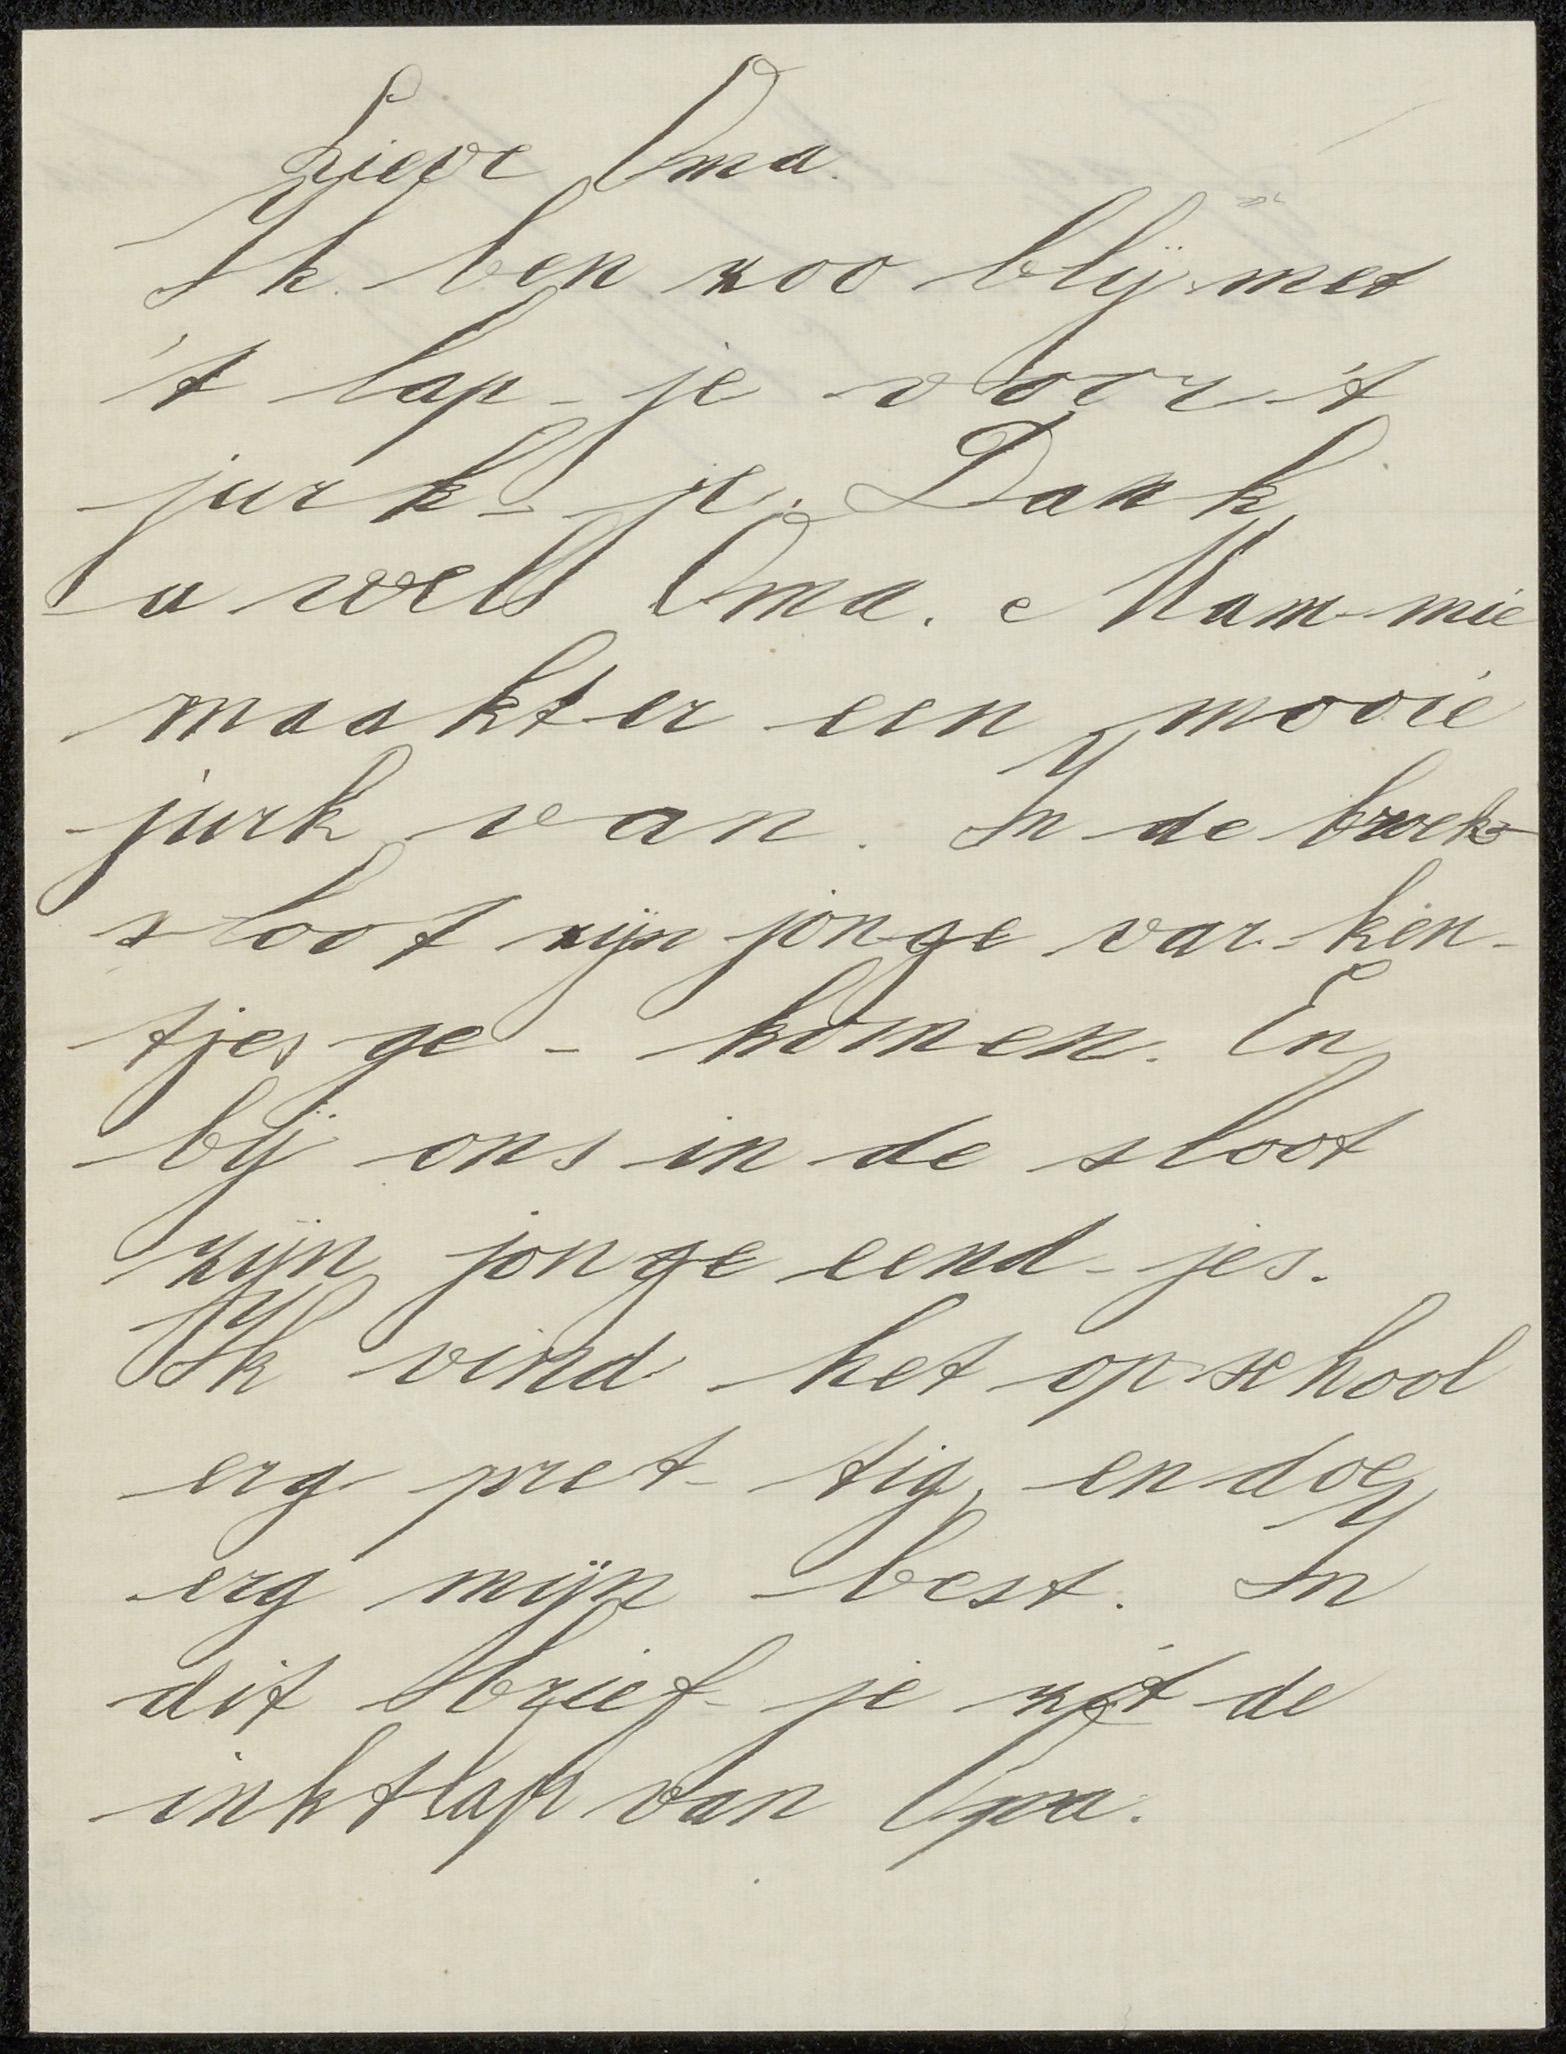 Lieve Oma.
Ik ben zoo blij met
't lap-je voor 't
jurk-je. Dank
u wel Oma. Mam-mie
maakt er een mooie
jurk van. In de broek-
sloot zijn jonge var-ken-
tjes ge-komen. En
bij ons in de sloot
zijn jonge eend-jes.
Ik vind het op school
erg pret-tig, en doe
erg mijn best. In
dit brief-je zit de
inktlap van Opa.